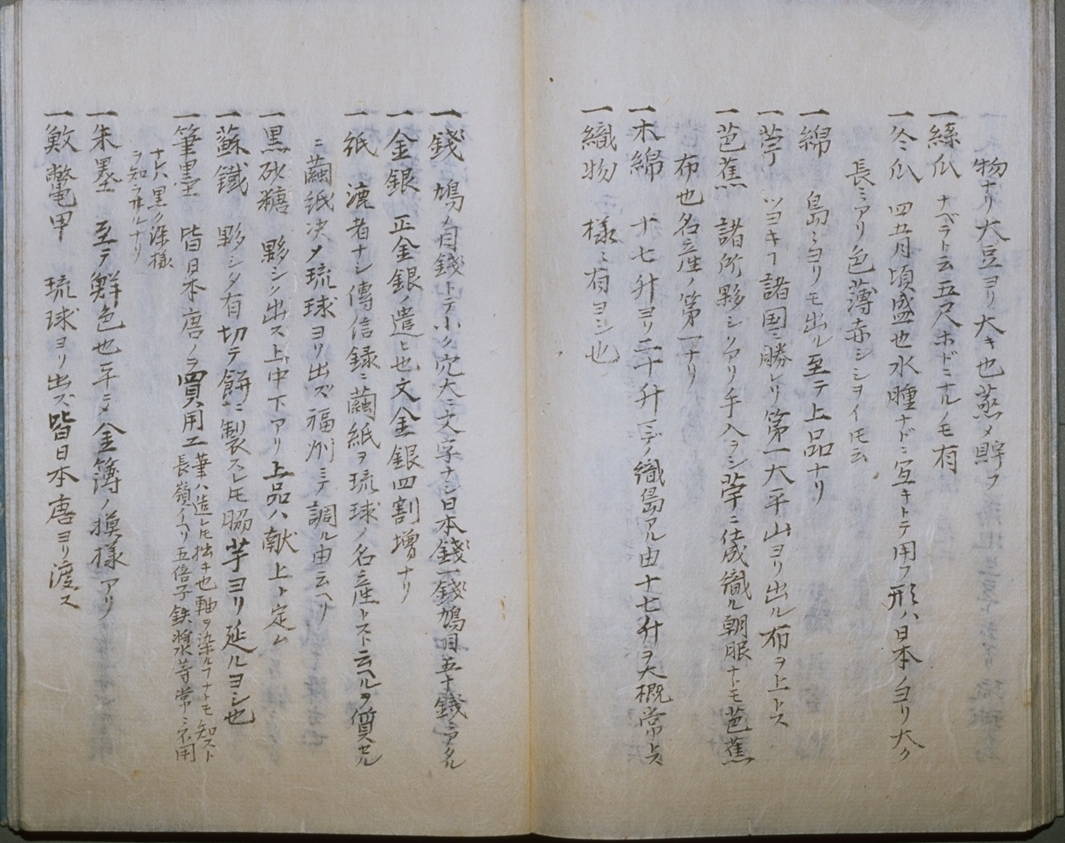 物ナリ大豆ヨリ大キ也蒸メ貯フ
一絲瓜 ナベラト云五尺ホドニナルノモ有
一冬瓜 四五月頃盛也水腫ナドニ宜キトテ用フ形ハ日本ノヨリ大ク
長ミアリ色薄赤シシヲイ圧云
一綿 島ミヨリモ出ル至テ上品ナリ
一苧 ツヨキヿ諸国ニ勝レリ第一大平山ヨリ出ル布ヲ上トス
一芭蕉 諸所夥シクアリ手入ヲシ苧ニ仕成織ル朝服ナトモ芭蕉
布也名産ノ第一ナリ
一木綿 十七升ヨリ二十升マデノ織島アル由十七升ヲ大概常トス
一織物 様ミ有ヨシ也
一錢 鳩ノ目錢トテ小ク穴大文字ナシ日本錢一錢鳩目五十錢ニアタル
一金銀 正金銀ノ遣ヒ也文金銀四割増ナリ
一紙 漉者ナシ傳信録ニ繭紙ヲ琉球ノ名産トスト云ヘルヲ質セル
ニ繭紙決メ琉球ヨリ出ズ福州ニテ調ル由云ヘリ
一黒砂糖 夥シク出ス上中下アリ上品ハ献上ト定ム
一蘇鐵 夥シク有切テ餅ニ製スレ圧脇芋ヨリ延ルヨシ也
一筆墨 皆日本唐ノヲ買用エ筆ハ造レ圧拙キ也軸ヲ染ルヿナトモ知スト
長嶺イヘリ五倍子鉄漿等常ニ不用
ナレ圧黒ク染様
ヲ知ラサルナリ
一朱墨 至テ鮮色也平メ金簿ノ摸様アリ
一鮫鼈甲 琉球ヨリ出ズ皆日本唐ヨリ渡ス